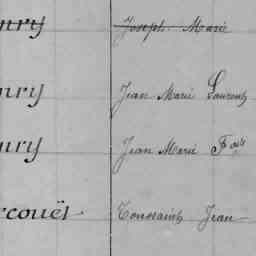 nry Joseph Marie
nry Jean Marie Laurent
nry Jean Marie Fois
rcouët Toussaint Jean